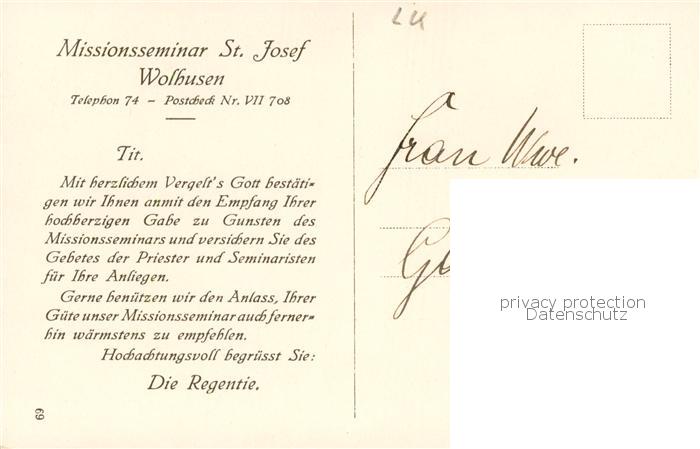 Missionsseminar St. Josef
Wolhusen
Telephon 74 – Postcheck Nr. VII 708
Tit.
Mit herzlichem Vergelt's Gott bestäti-
gen wir Ihnen anmit den Empfang Ihrer
hochherzigen Gabe zu Gunsten des
Missionsseminars und versichern Sie des
Gebetes der Priester und Seminaristen
für Ihre Anliegen.
Gerne benützen wir den Anlass, Ihrer
Güte unser Missionsseminar auch ferner-
hin wärmstens zu empfehlen.
Hochachtungsvoll begrüsst Sie:
Die Regentie.
69
Frau Wwe.
privacy protection
Datenschutz